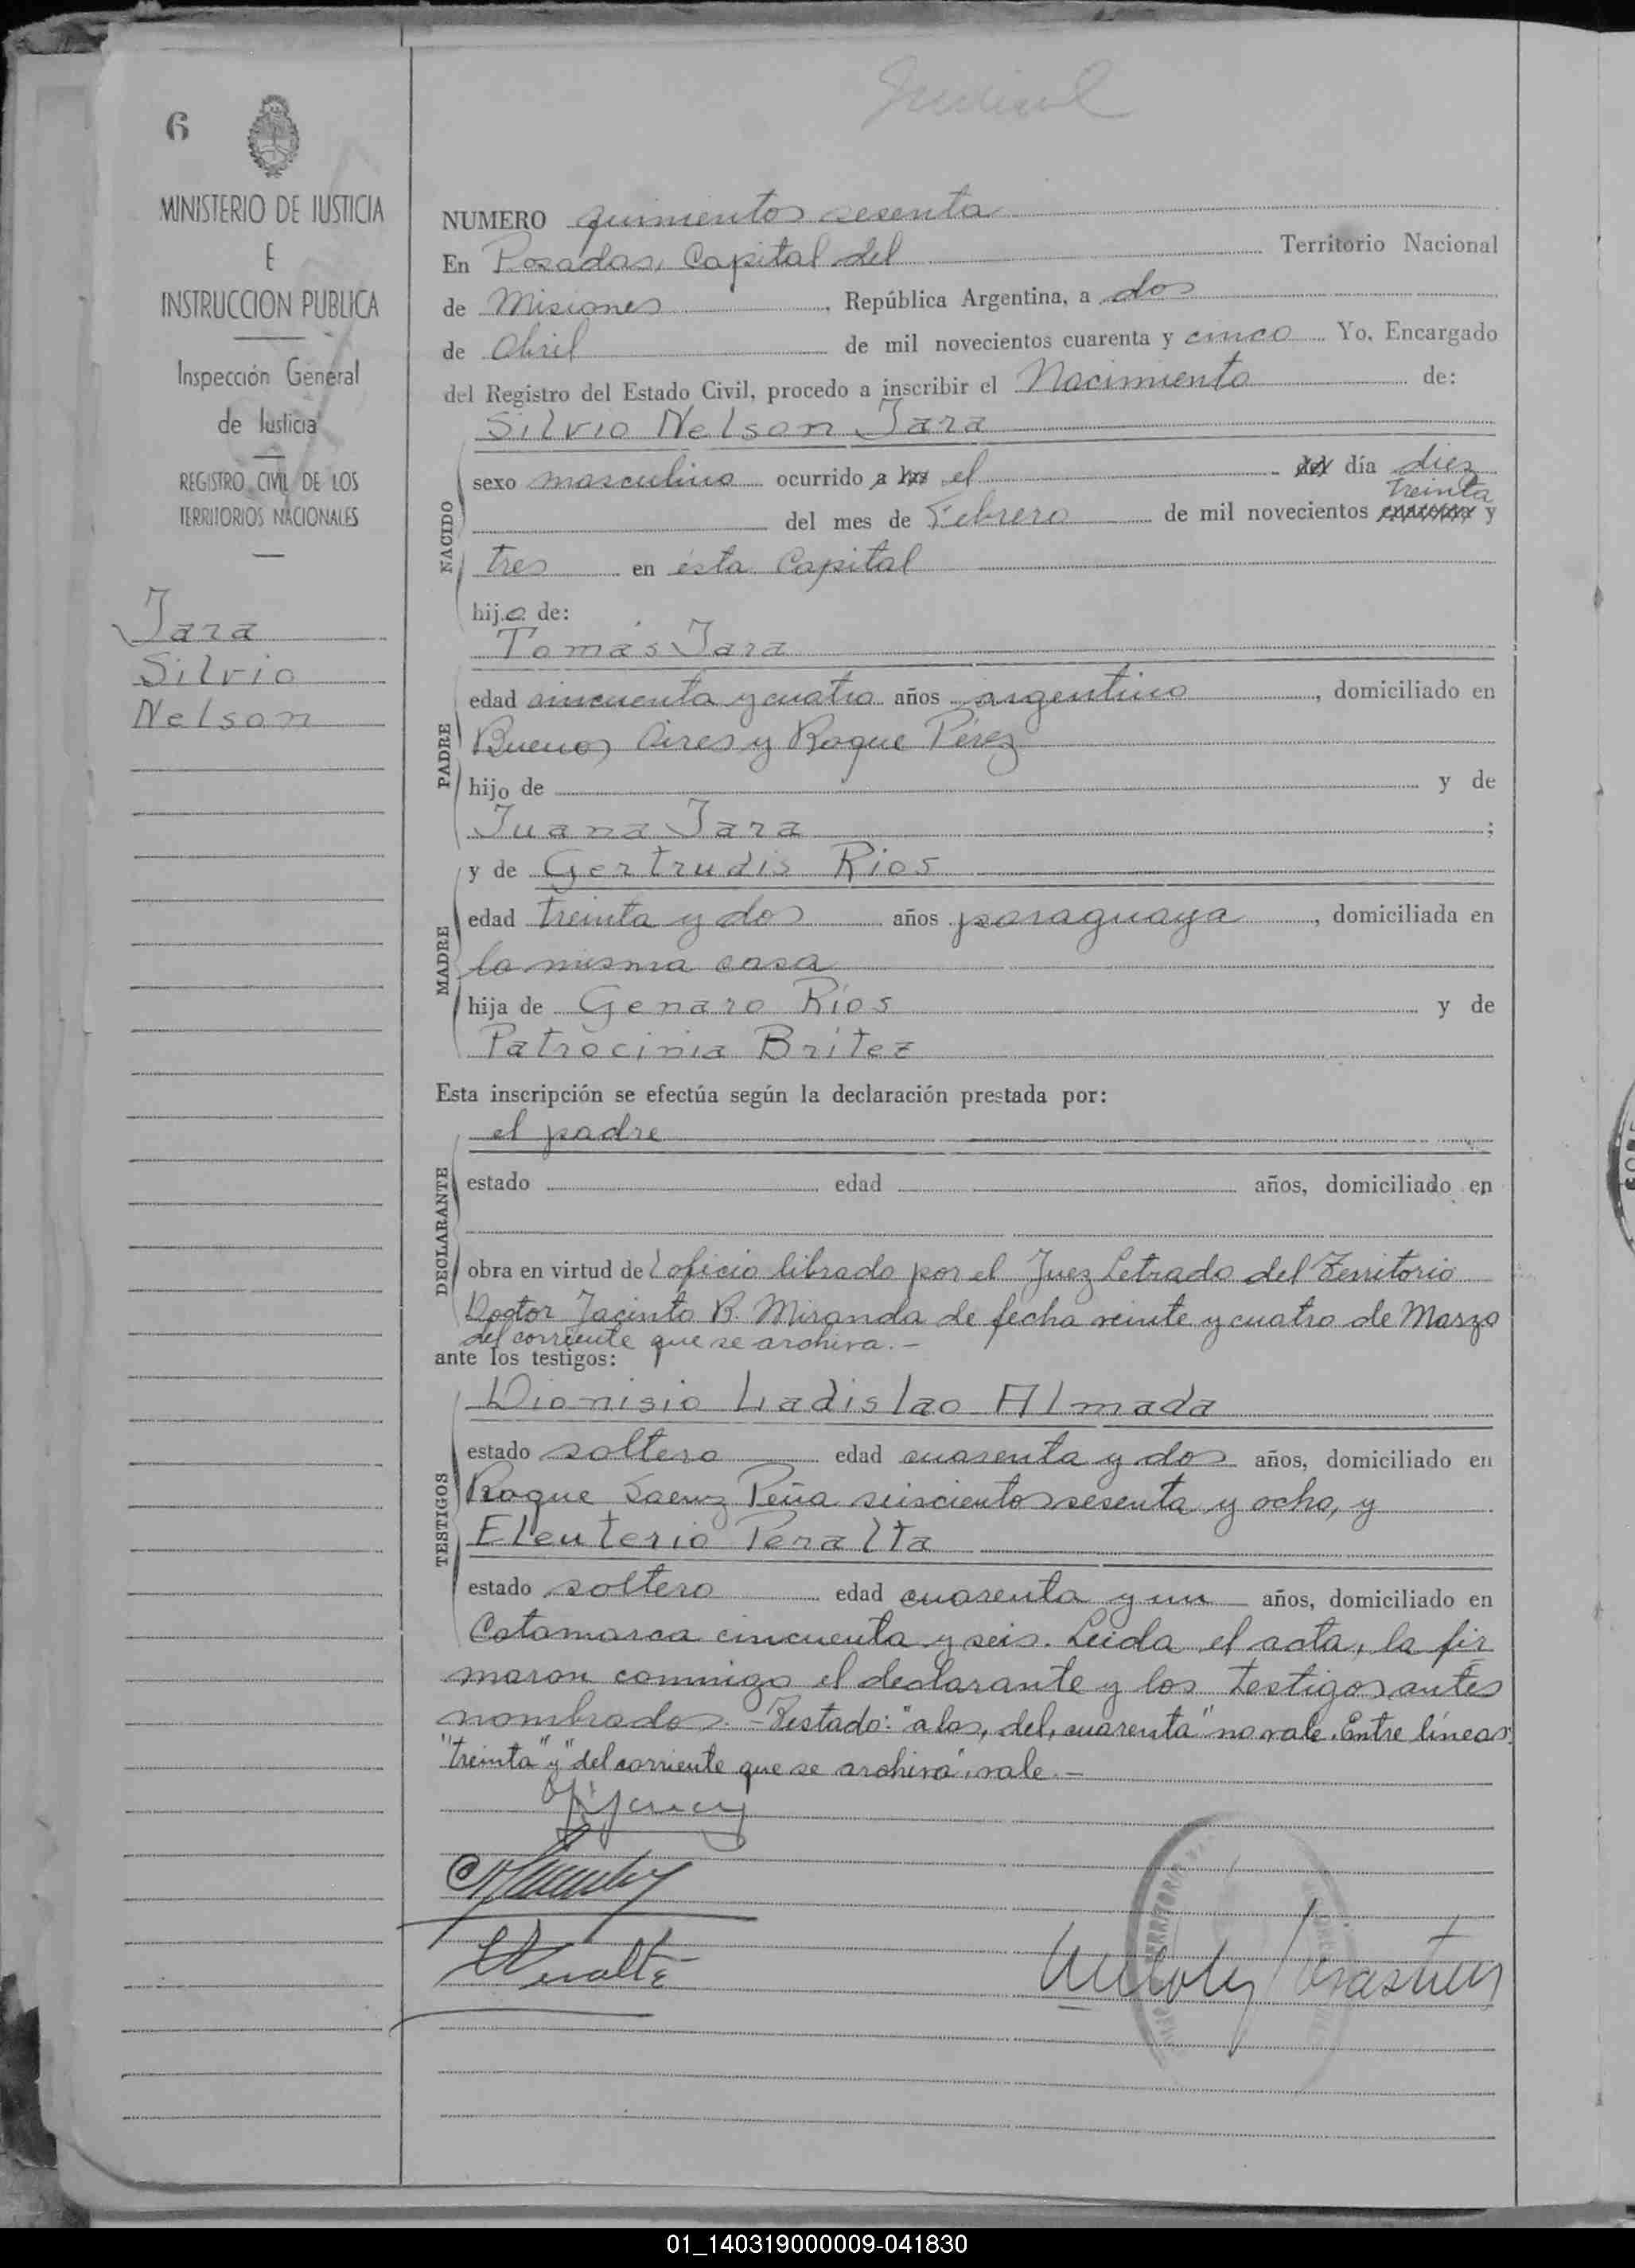 Judicial
6
MINISTERIO DE JUSTICIA
E
INSTRUCCION PUBLICA
Inspección General
de Justicia
REGISTRO CIVIL DE LOS
TERRITORIOS NACIONALES
Jara
Silvio
Nelson
NUMERO quinientos sesenta
En Posadas, Capital del Territorio Nacional
de Misiones, República Argentina, a dos
de Abril de mil novecientos cuarenta y cinco Yo, Encargado
del Registro del Estado Civil, procedo a inscribir el Nacimiento de:
NACIDO
Silvio Nelson Jara
sexo masculino ocurrido a las el del día diez
treinta
del mes de Febrero de mil novecientos cuarenta y
tres en ésta Capital
hijo de:
PADRE
Tomás Jara
edad cincuenta y cuatro años argentino, domiciliado en
Buenos Aires y Roque Pérez
hijo de y de
Juana Jara;
MADRE
y de Gertrudis Rios
edad treinta y dos años paraguaya, domiciliada en
la misma casa
hija de Genaro Ríos y de
Patrocinia Britez
Esta inscripción se efectúa según la declaración prestada por:
DECLARANTE
el padre
estado edad años, domiciliado en
obra en virtud del oficio librado por el Juez Letrado del Territorio
Doctor Jacinto R. Miranda de fecha veinte y cuatro de Marzo
del corriente que se archiva.-
ante los testigos:
TESTIGOS
Dionisio Ladislao Almada
estado soltero edad cuarenta y dos años, domiciliado en
Roque Saenz Peña seiscientos sesenta y ocho, y
Eleuterio Peralta
estado soltero edad cuarenta y un años, domiciliado en
Catamarca cincuenta y seis. Leida el acta, la fir
maron conmigo el declarante y los testigos antes
nombrados.-Testado: "a las, del, cuarenta" no vale. Entre líneas:
"treinta" y "del corriente que se archiva", vale.-
01_140319000009-041830